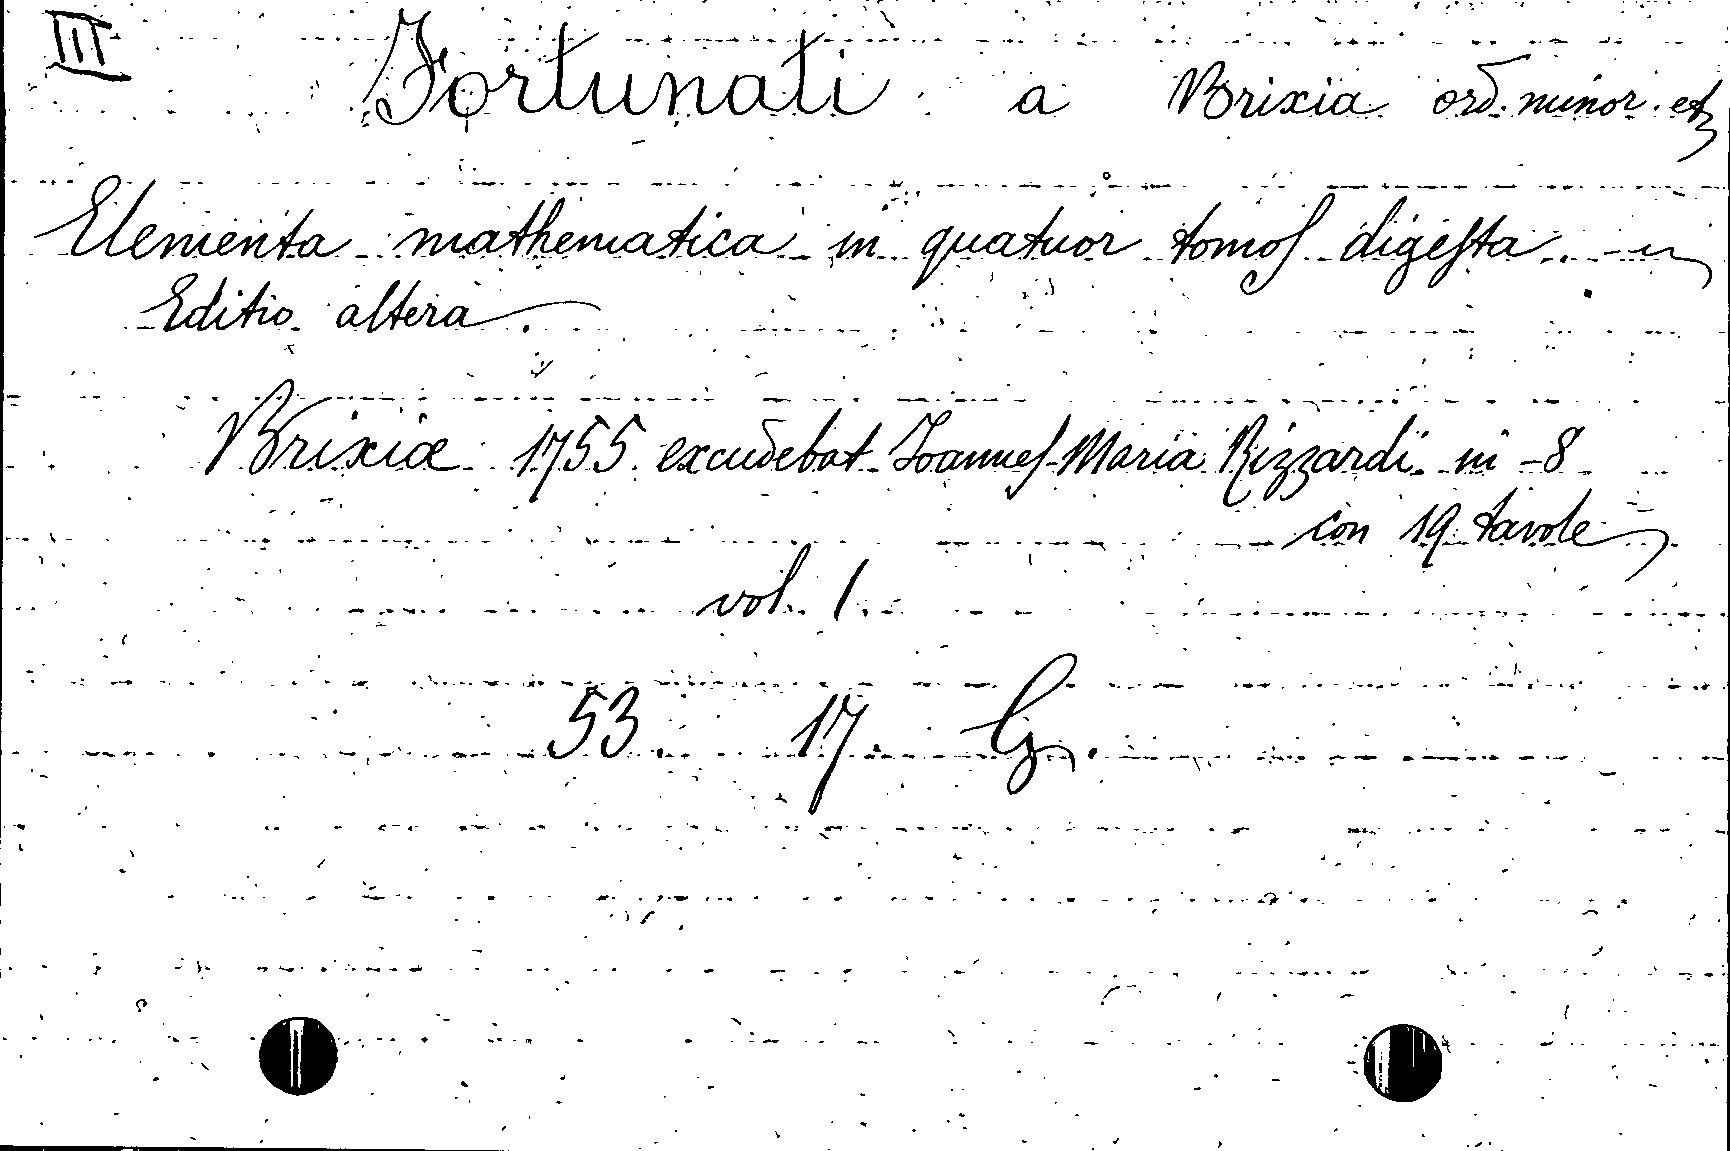 III Fortunati a Brixia ord. minor. etz
Elementa mathematica in quatuor tomoſ digeſta.
Editio altera.
Brixiæ 1755 excudebat Joanneſ Maria Rizzardi in-8
con 19 tavole
vol. 1
53. 17. G.